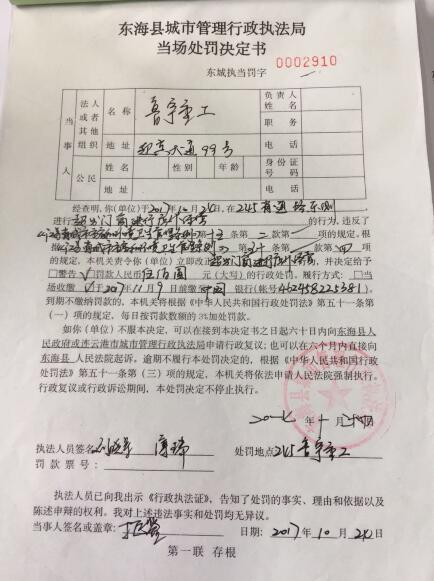 东海县城市管理行政执法局
当场处罚决定书
东城执当罚字 0002910
当事人
法人或者其他组织
名称 鲁宇重工
负责人姓名
职务
地址 迎宾大道99号
电话
公民
姓名 性别 年龄
身份证号码
地址
电话
经查明,你(单位)于2017年10月24日,在245省道 东侧
进行超出门窗进行店外经营的行为,违反了
第 条第二款第 项的规定,根
据 第 条第 款第四项
的规定,本机关责令你(单位)立即改正 ,并决定给予
□警告 罚款人民币伍佰圆元(大写)的行政处罚,履行方式:□当
场收缴 于2017年11月9日前缴中国银行(帐号462458225381)。
到期不缴纳罚款的,本机关将根据《中华人民共和国行政处罚法》第五十一条第
(一)项的规定,每日按罚款数额的3%加处罚款。
如你(单位)不服本决定,可以在接到本决定书之日起六十日内向东海县人
民政府或连云港市城市管理行政执法局申请行政复议;也可以在六个月内直接向
东海县人民法院起诉。逾期不履行本处罚决定的,根据《中华人民共和国行政
处罚法》第五十一条第(三)项的规定,本机关将依法申请人民法院强制执行。
行政复议或行政诉讼期间,本处罚决定不停止执行。
年十月 日
执法人员签名
处罚地点245鲁宇重工
罚款票号:
执法人员已向我出示《行政执法证》,告知了处罚的事实、理由和依据以及
陈述申辩的权利。我对上述违法事实和处罚均无异议。
当事人签名或盖章: 日期:2017年10月24日
第一联 存根